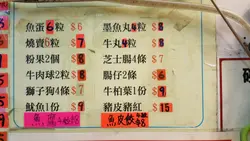 魚蛋6粒 $6
燒賣6粒 $7
粉果2個 $8
牛肉球2粒 $8
獅子狗4條 $7
魷魚1份 $9
墨魚丸4粒 $8
牛丸4粒 $8
芝士腸4條 $7
腸仔2條 $6
牛柏葉1份 $9
豬皮豬紅 $15
魚腐
魚皮餃